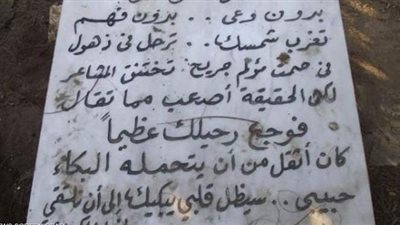 بدون وعى .. بدون فهم
تغرب شمسك .. ترحل فى ذهول
فى صمت مؤلم جريح تختنق المشاعر
لكن الحقيقة أصعب مما تقال
فوجيع رحيلك عظيماً
كان أثقل من أن يتحمله البكاء
حبيبى .. سيظل قلبى يبكيك إلى أن نلتقى